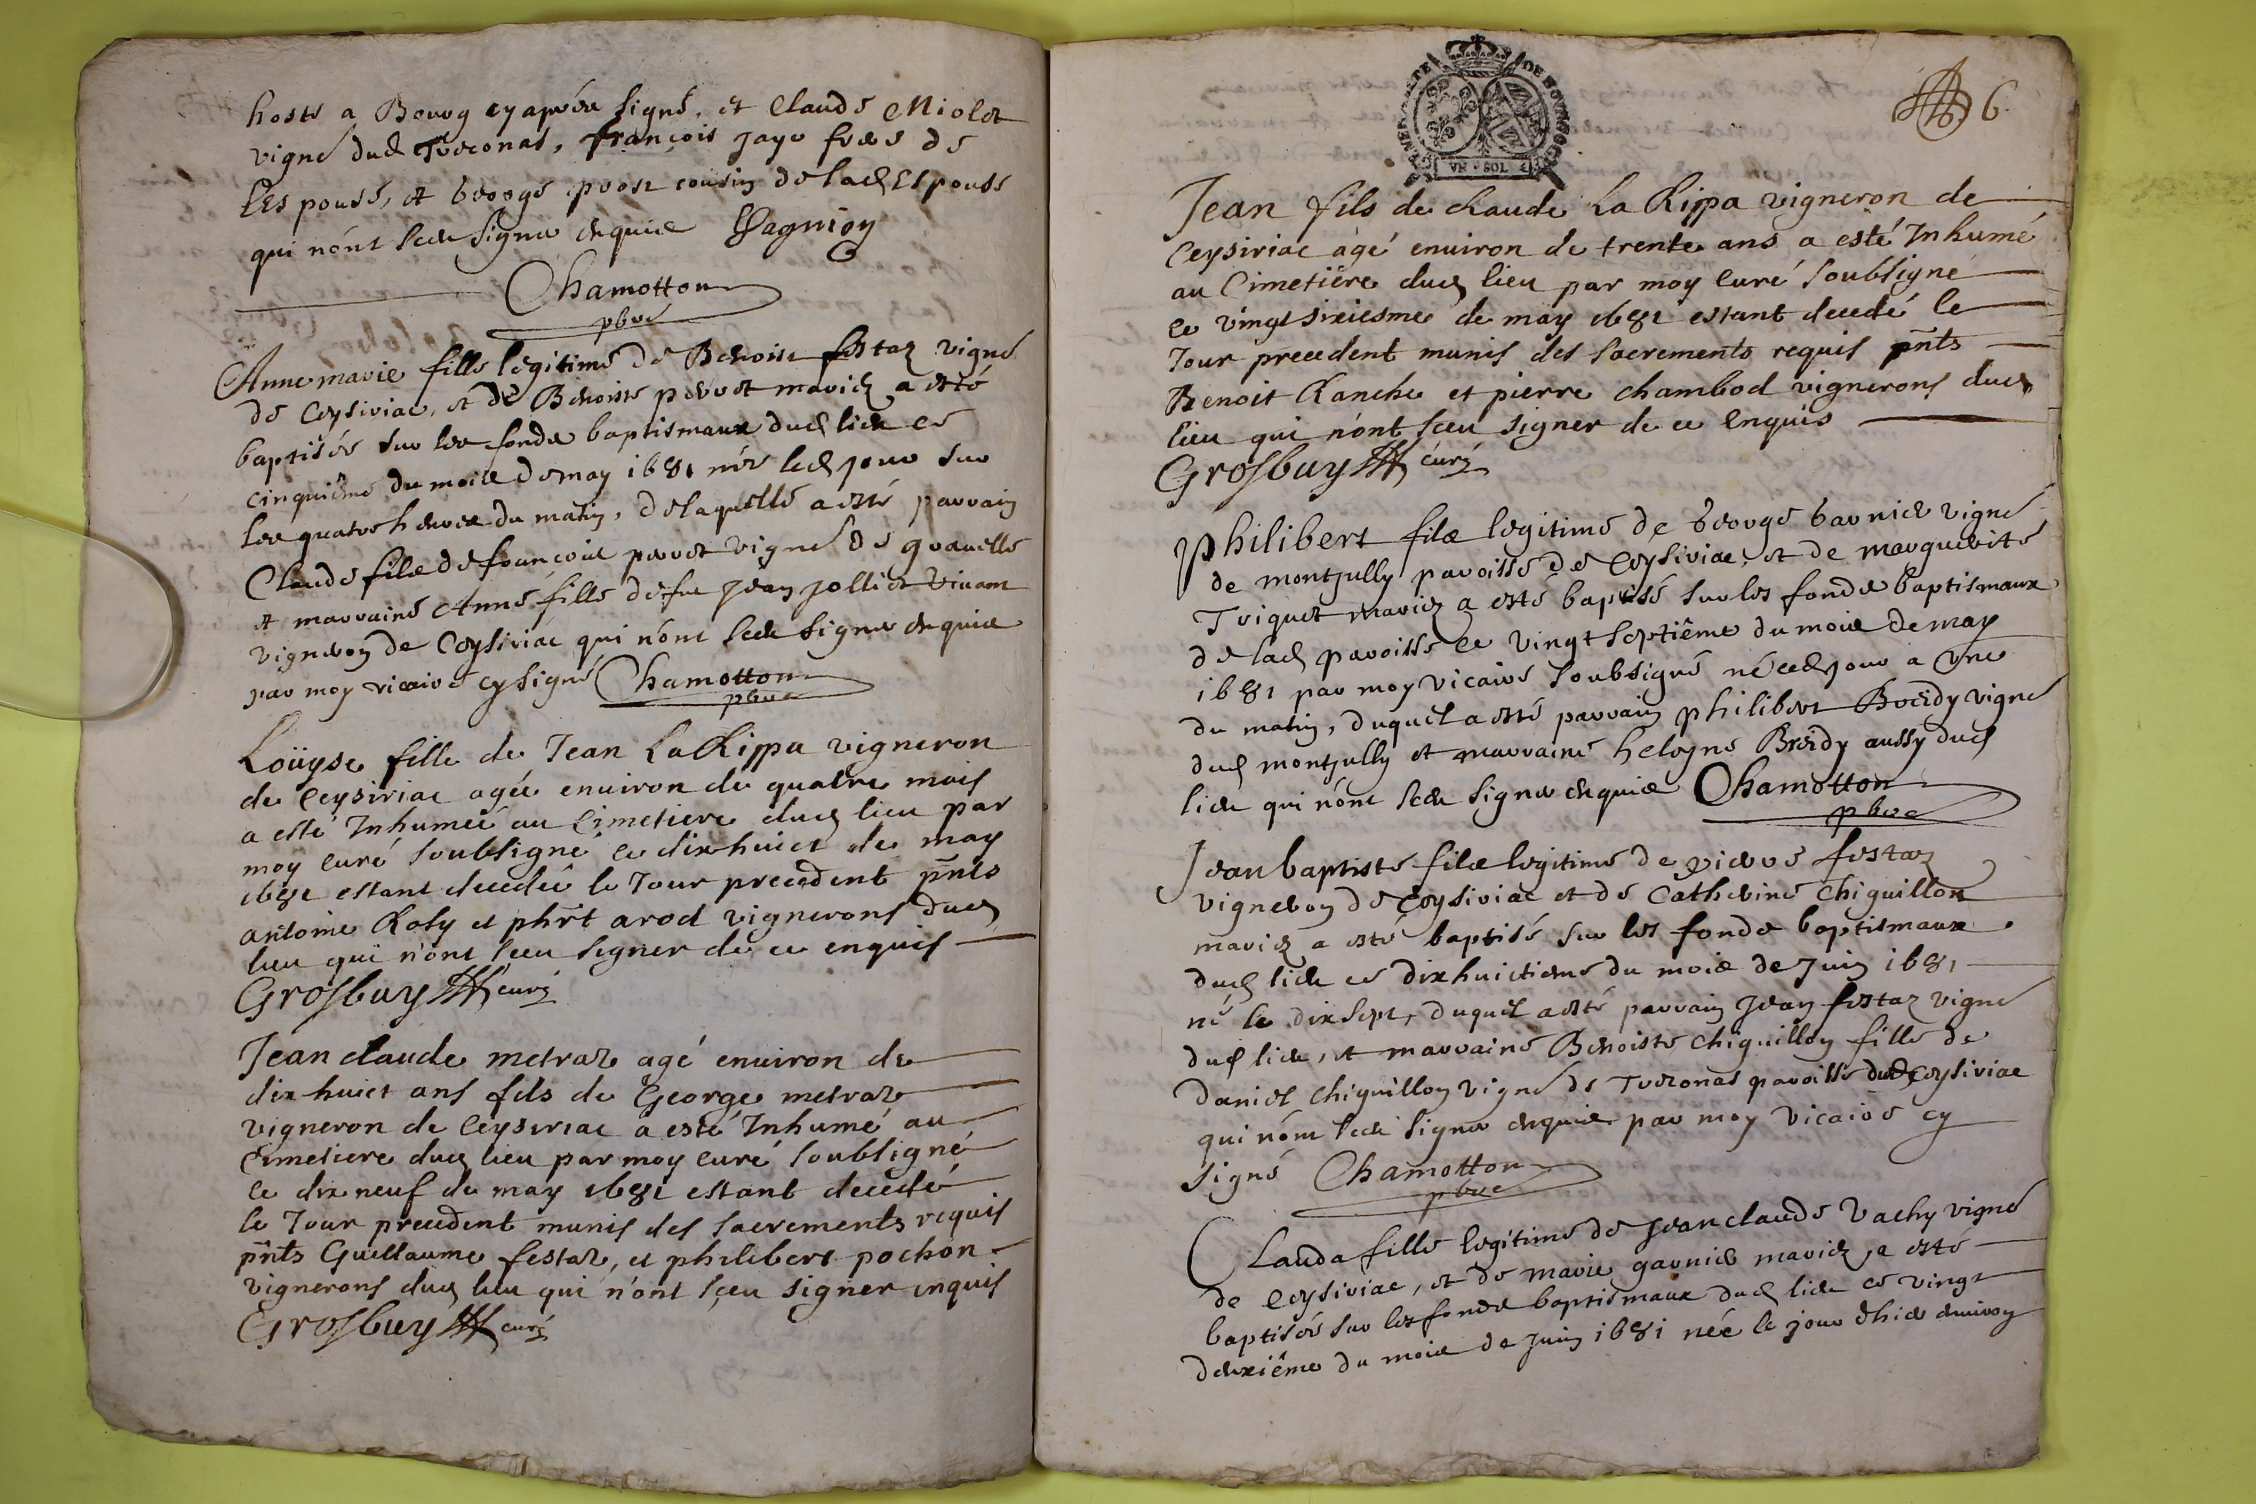 hoste a Bourg cy apres signé, et Claude Miolet
vigne dud Treconas, françois Jayr frere de
lespouse, et George prost cousin de lad Espouse
qui nont sceu signer enquis Gagnion
Chamotton
pbre
Anne marie fille legitime de Benoist festaz vigne
de Ceysiriac, et de Benoiste pervet mariez a esté
baptisée sur les fonds baptismaux dud lieu ce
cinquième du mois de may 1681 née led jour sur
les quatre heures du matin, de laquelle a esté parrain
Claude fils de françois pervet vigne de gravelle
et marraine Anne fille de fu Jean Jolliet vivant
vigneron de Ceysiriac qui nont sceu signer enquis
par moy vicaire cy signé Chamotton
pbre
Loüyse fille de Jean La Rippa vigneron
de Ceysiriac agée environ de quatre mois
a esté Inhumée au Cimetiere dud lieu par
moy curé soubsigné ce dixhuict de may
1681 estant decedée le Jour precedent pnts
antoine Roly et phrt arod vignerons dud
lieu qui n'ont sceu signer de ce enquis
Grosbuy curé
Jean claude metraz agé environ de
dix huict ans fils de George metraz
vigneron de Ceysiriac a esté Inhumé au
Cimetiere dud lieu par moy curé soubsigné
ce dix neuf de may 1681 estant decedé
le Jour precedent munis des sacrements requis
pnts Guillaume festaz, et philibert pochon
vignerons dud lieu qui n'ont sceu signer enquis
Grosbuy curé
GENERALITE DE BOURGOGNE
VN · SOL
6
6.
Jean fils de claude La Rippa vigneron de
Ceysiriac agé environ de trente ans a esté Inhumé
au Cimetiére dud lieu par moy curé soubsigné
ce vingt sixiesme de may 1681 estant decedé le
Jour precedent munis des sacrements requis pnts
Benoit Ranche et pierre chambod vignerons dud
lieu qui n'ont sceu signer de ce enquis
Grosbuy curé
Philibert fils legitime de George Garnier vigne
de montjully paroisse de Ceysiriac, et de marguerite
Triquet mariez a esté baptisé sur les fonds baptismaux
de lad paroisse ce vingt septiême du mois de may
1681 par moy vicaire soubsigné né ced jour a une
du matin, duquel a esté parrain philibert Breidy vigne
dud montjully et marraine heleyne Breidy aussy dud
lieu qui nont sceu signer enquis Chamotton
pbre
Jean baptiste fils legitime de pierre festaz
vigneron de Ceysiriac et de Catherine Chiquillon
mariez a esté baptisé sur les fonds baptismaux
dud lieu ce dixhuictieme du mois de Juin 1681
né le dix sept, duquel a esté parrain Jean festaz vigne
dud lieu, et marraine Benoiste Chiquillon fille de
Daniel Chiquillon vigne de Treconas paroisse dud Ceysiriac
qui nont sceu signer enquis par moy vicaire cy
signé Chamotton
pbre
Clauda fille legitime de Jean claude Vachy vigne
de Ceysiriac, et de marie garnier mariez, a esté
baptisée sur les fonds baptismaux dud lieu ce vingt
deuxiême du mois de Juin 1681 née le jour d'hier environ